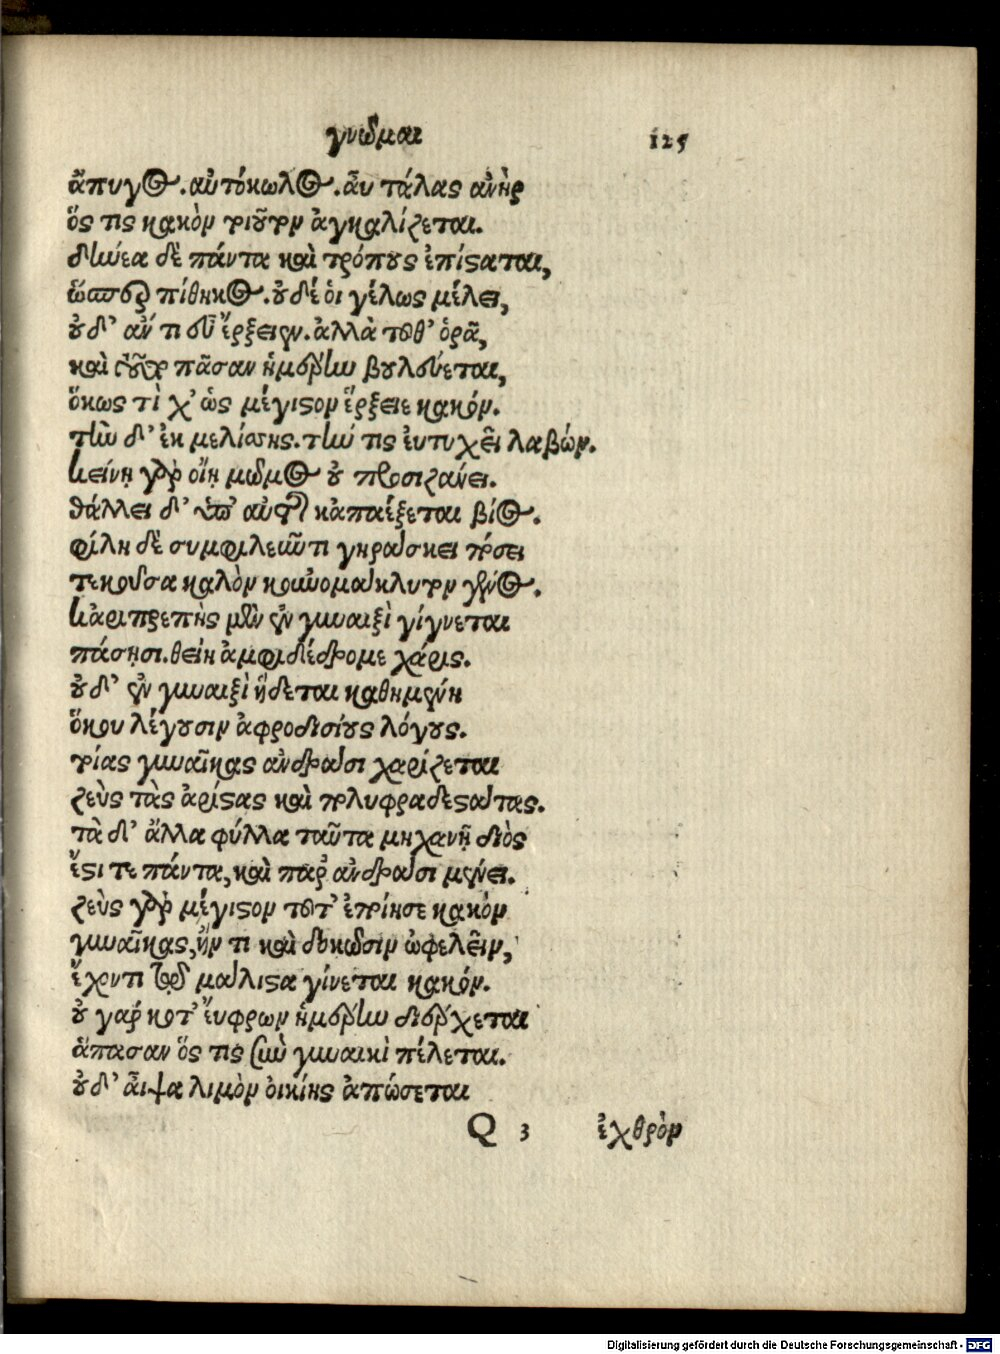 γνῶμαι 125
ἄπυγος. αὐτόκωλος. ἆυ τάλας ἀνὴρ
ὅς τις κακὸν τοιοῦτον ἀγκαλίζεται.
δίωεα δὲ πάντα καὶ τρόπους ἐπίσαται,
ὥσπερ πίθηκος. οὐδέ ὁι γέλως μέλει,
οὐδ' ἄν τι εὖ ἔρξειεν. ἀλλὰ τοῦθ' ὁρᾶ,
καὶ τοῦτο πᾶσαν ἡμέρην βουλεύεται,
ὅκως τὶ χ' ὡς μέγιστον ἕρξειε κακόν.
τὴν δ' ἐκ μελίσσης. τήν τις ἐυτυχεῖ λαβών.
κείνῃ γὰρ οἴῃ μῶμος οὐ προσιζάνει.
θάλλει δ' ὑπ' αὐτῆς κἀπαέξεται βίος.
φίλη δὲ συμφιλεῦντι γηράσκει πόσει
τεκοῦσα καλὸν κοὐνομάκλυτον γένος.
κἀριπρεπὴς μὲν ἐν γυναιξὶ γίγνεται
πάσῃσι. θείη ἀμφιδέδρομε χάρις.
οὐδ' ἐν γυναιξὶ ἥδεται καθημένη
ὅκου λέγουσιν ἀφροδισίους λόγους.
τοίας γυναῖκας ἀνδράσι χαρίζεται
ζεὺς τὰς ἀρίστας καὶ πολυφραδεστάτας.
τὰ δ' ἄλλα φύλλα ταῦτα μηχανῇ διὸς
ἔστι τε πάντα, καὶ παρ' ἀνδράσι μένει.
ζεὺς γὰρ μέγιστον τοῦτ' ἐποίησε κακὸν
γυναῖκας, ἤν τι καὶ δοκῶσιν ὠφελεῖν,
ἔχοντι τῷ μάλιστα γίνεται κακόν.
οὐ γάρ κοτ' ἔυφρων ἡμέρην διέρχεται
ἅπασαν ὅς τις σὺν γυναικὶ πέλεται.
οὐδ' ἆιψα λιμὸν οἰκίης ἀπώσεται
Q 3 ἐχθρὸν
Digitalisierung gefördert durch die Deutsche Forschungsgemeinschaft - DFG